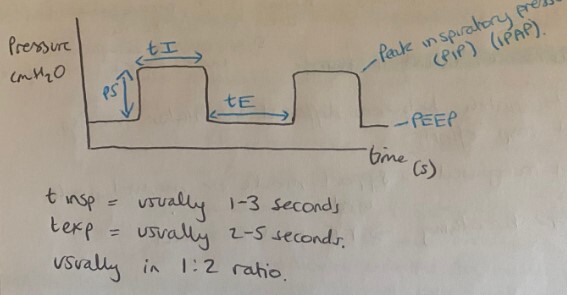 Pressure
cmH2O
tI
PS
tE
Peak inspiratory
(PIP) (IPAP).
PEEP
time (s)
t insp = usually 1-3 seconds
texp = usually 2-5 seconds.
usually in 1:2 ratio.